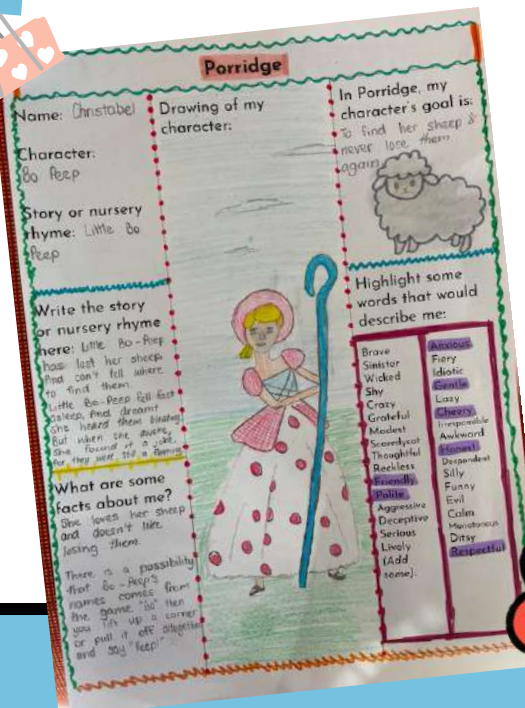 Porridge
Name: Christabel
Character:
Bo Peep
Story or nursery
rhyme: Little Bo
Peep
Write the story
or nursery rhyme
here: Little Bo-Peep
has lost her sheep
And can't tell where
to find them.
Little Bo-Peep fell fast
asleep, And dreamt
she heard them bleating,
But when she awoke,
she found it a joke,
for they were still a fleeting
What are some
facts about me?
She loves her sheep
and doesn't like
losing them.
There is a possibility
that Bo-Peep's
names comes from
the game "bo" then
you lift up a corner
or pull it off altogether
and say "Peep!"
Drawing of my
character:
In Porridge, my
character's goal is:
To find her sheep &
never lose them
again
Highlight some
words that would
describe me:
Brave
Sinister
Wicked
Shy
Crazy
Grateful
Modest
Scaredycat
Thoughtful
Reckless
Friendly
Polite
Aggressive
Deceptive
Serious
Lively
(Add
some).
Anxious
Fiery
Idiotic
Gentle
Lazy
Cheery
Irresponsible
Awkward
Honest
Despondent
Silly
Funny
Evil
Calm
Monotonous
Ditsy
Respectful